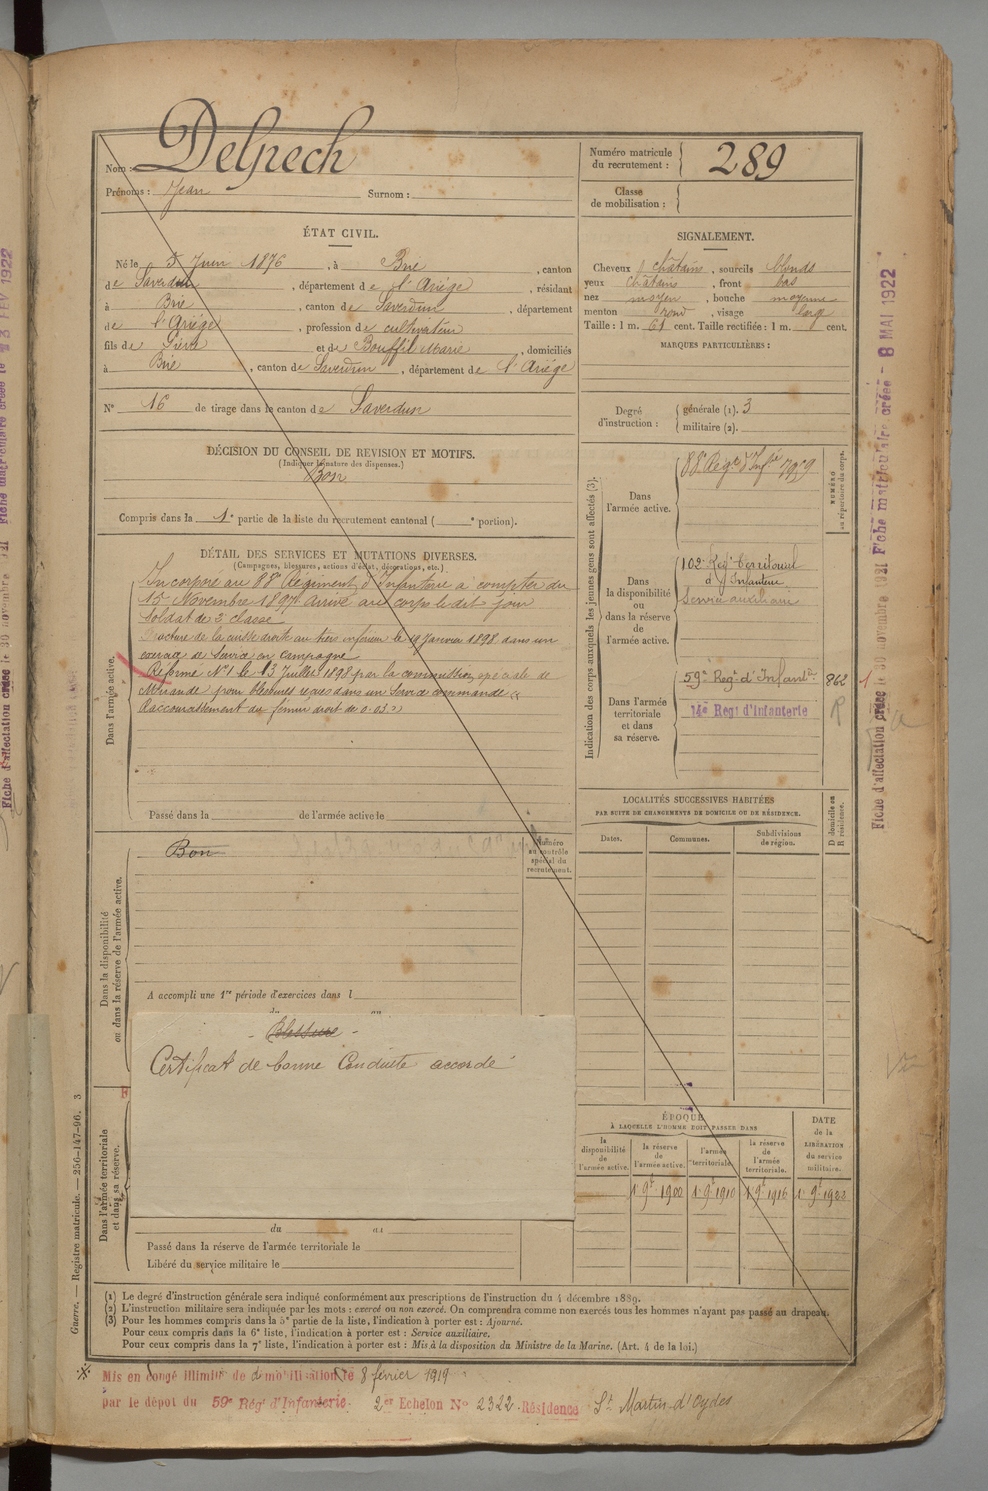 Nom : Delpech
Prénoms : Jean Surnom :
Numéro matricule du recrutement : 289
Classe de mobilisation :
ÉTAT CIVIL.
Né le 5 Juin 1876, à Brie, canton
de Saverdun, département de l'Ariège, résidant
à Brie, canton de Saverdun, département
de l'Ariège, profession de cultivateur
fils de Pierre et de Bouffil Marie, domiciliés
à Brie, canton de Saverdun, département de l'Ariège
N° 16 de tirage dans le canton de Saverdun
SIGNALEMENT.
Cheveux châtains, sourcils blonds
yeux châtains, front bas
nez moyen, bouche moyenne
menton rond, visage large
Taille : 1 m. 61 cent. Taille rectifiée : 1 m. cent.
MARQUES PARTICULIÈRES :
Degré d'instruction : générale (1). 3
militaire (2).
DÉCISION DU CONSEIL DE REVISION ET MOTIFS.
(Indiquer la nature des dispenses.)
Bon
Compris dans la 1e partie de la liste du recrutement cantonal ( e portion).
DÉTAIL DES SERVICES ET MUTATIONS DIVERSES.
(Campagnes, blessures, actions d'éclat, décorations, etc.)
Dans l'armée active.
Incorporé au 88e Régiment d'Infanterie à compter du
15 Novembre 1897. Arrivé au corps le dit jour
Soldat de 2e classe
Fracture de la cuisse droite au tiers inférieur le 19 Janvier 1898 dans un
exercice de Service en Campagne
Réformé N°1 le 13 Juillet 1898 par la commission spéciale de
Mirande pour blessures reçues dans un Service commandé "
Raccourcissement du fémur droit de 0.03 "
Passé dans la de l'armée active le
Indication des corps auxquels les jeunes gens sont affectés (3).
NUMÉRO au répertoire du corps.
Dans l'armée active.
88e Régt d'Infie
Dans la disponibilité ou dans la réserve de l'armée active.
102e Regt Territorial
d'Infanterie
Service auxiliaire
Dans l'armée territoriale et dans sa réserve.
59e Regt d'Infantie 862
14e Regt d'Infanterie R
LOCALITÉS SUCCESSIVES HABITÉES
PAR SUITE DE CHANGEMENTS DE DOMICILE OU DE RÉSIDENCE.
Dates. Communes. Subdivisions de région. D domicile ou R résidence.
Dans la disponibilité ou dans la réserve de l'armée active.
Bon
Numéro au contrôle spécial du recrutement.
A accompli une 1re période d'exercices dans l
- Blessure -
Certificat de bonne Conduite accordé
Dans l'armée territoriale et dans sa réserve.
du au
Passé dans la réserve de l'armée territoriale le
Libéré du service militaire le
ÉPOQUE
À LAQUELLE L'HOMME DOIT PASSER DANS
la disponibilité de l'armée active. la réserve de l'armée active. l'armée territoriale. la réserve de l'armée territoriale. DATE de la LIBÉRATION du service militaire.
1 9e 1900 1 9e 1910 1 9e 1916
(1) Le degré d'instruction générale sera indiqué conformément aux prescriptions de l'instruction du 4 décembre 1889.
(2) L'instruction militaire sera indiquée par les mots : exercé ou non exercé. On comprendra comme non exercés tous les hommes n'ayant pas passé au drapeau.
(3) Pour les hommes compris dans la 5e partie de la liste, l'indication à porter est : Ajourné.
Pour ceux compris dans la 6e liste, l'indication à porter est : Service auxiliaire.
Pour ceux compris dans la 7e liste, l'indication à porter est : Mis à la disposition du Ministre de la Marine. (Art. 4 de la loi.)
Mis en congé illimité de démobilisation le 8 février 1919
par le dépôt du 59e Rég't d'Infanterie. 2er Echelon N° 2322. Résidence St Martin-d'Oydes
Guerre. — Registre matricule. — 250-147-96. 3
Fiche d'affectation créée le 30 novembre 1921 Fiche matriculaire créée - 8 MAI 1922